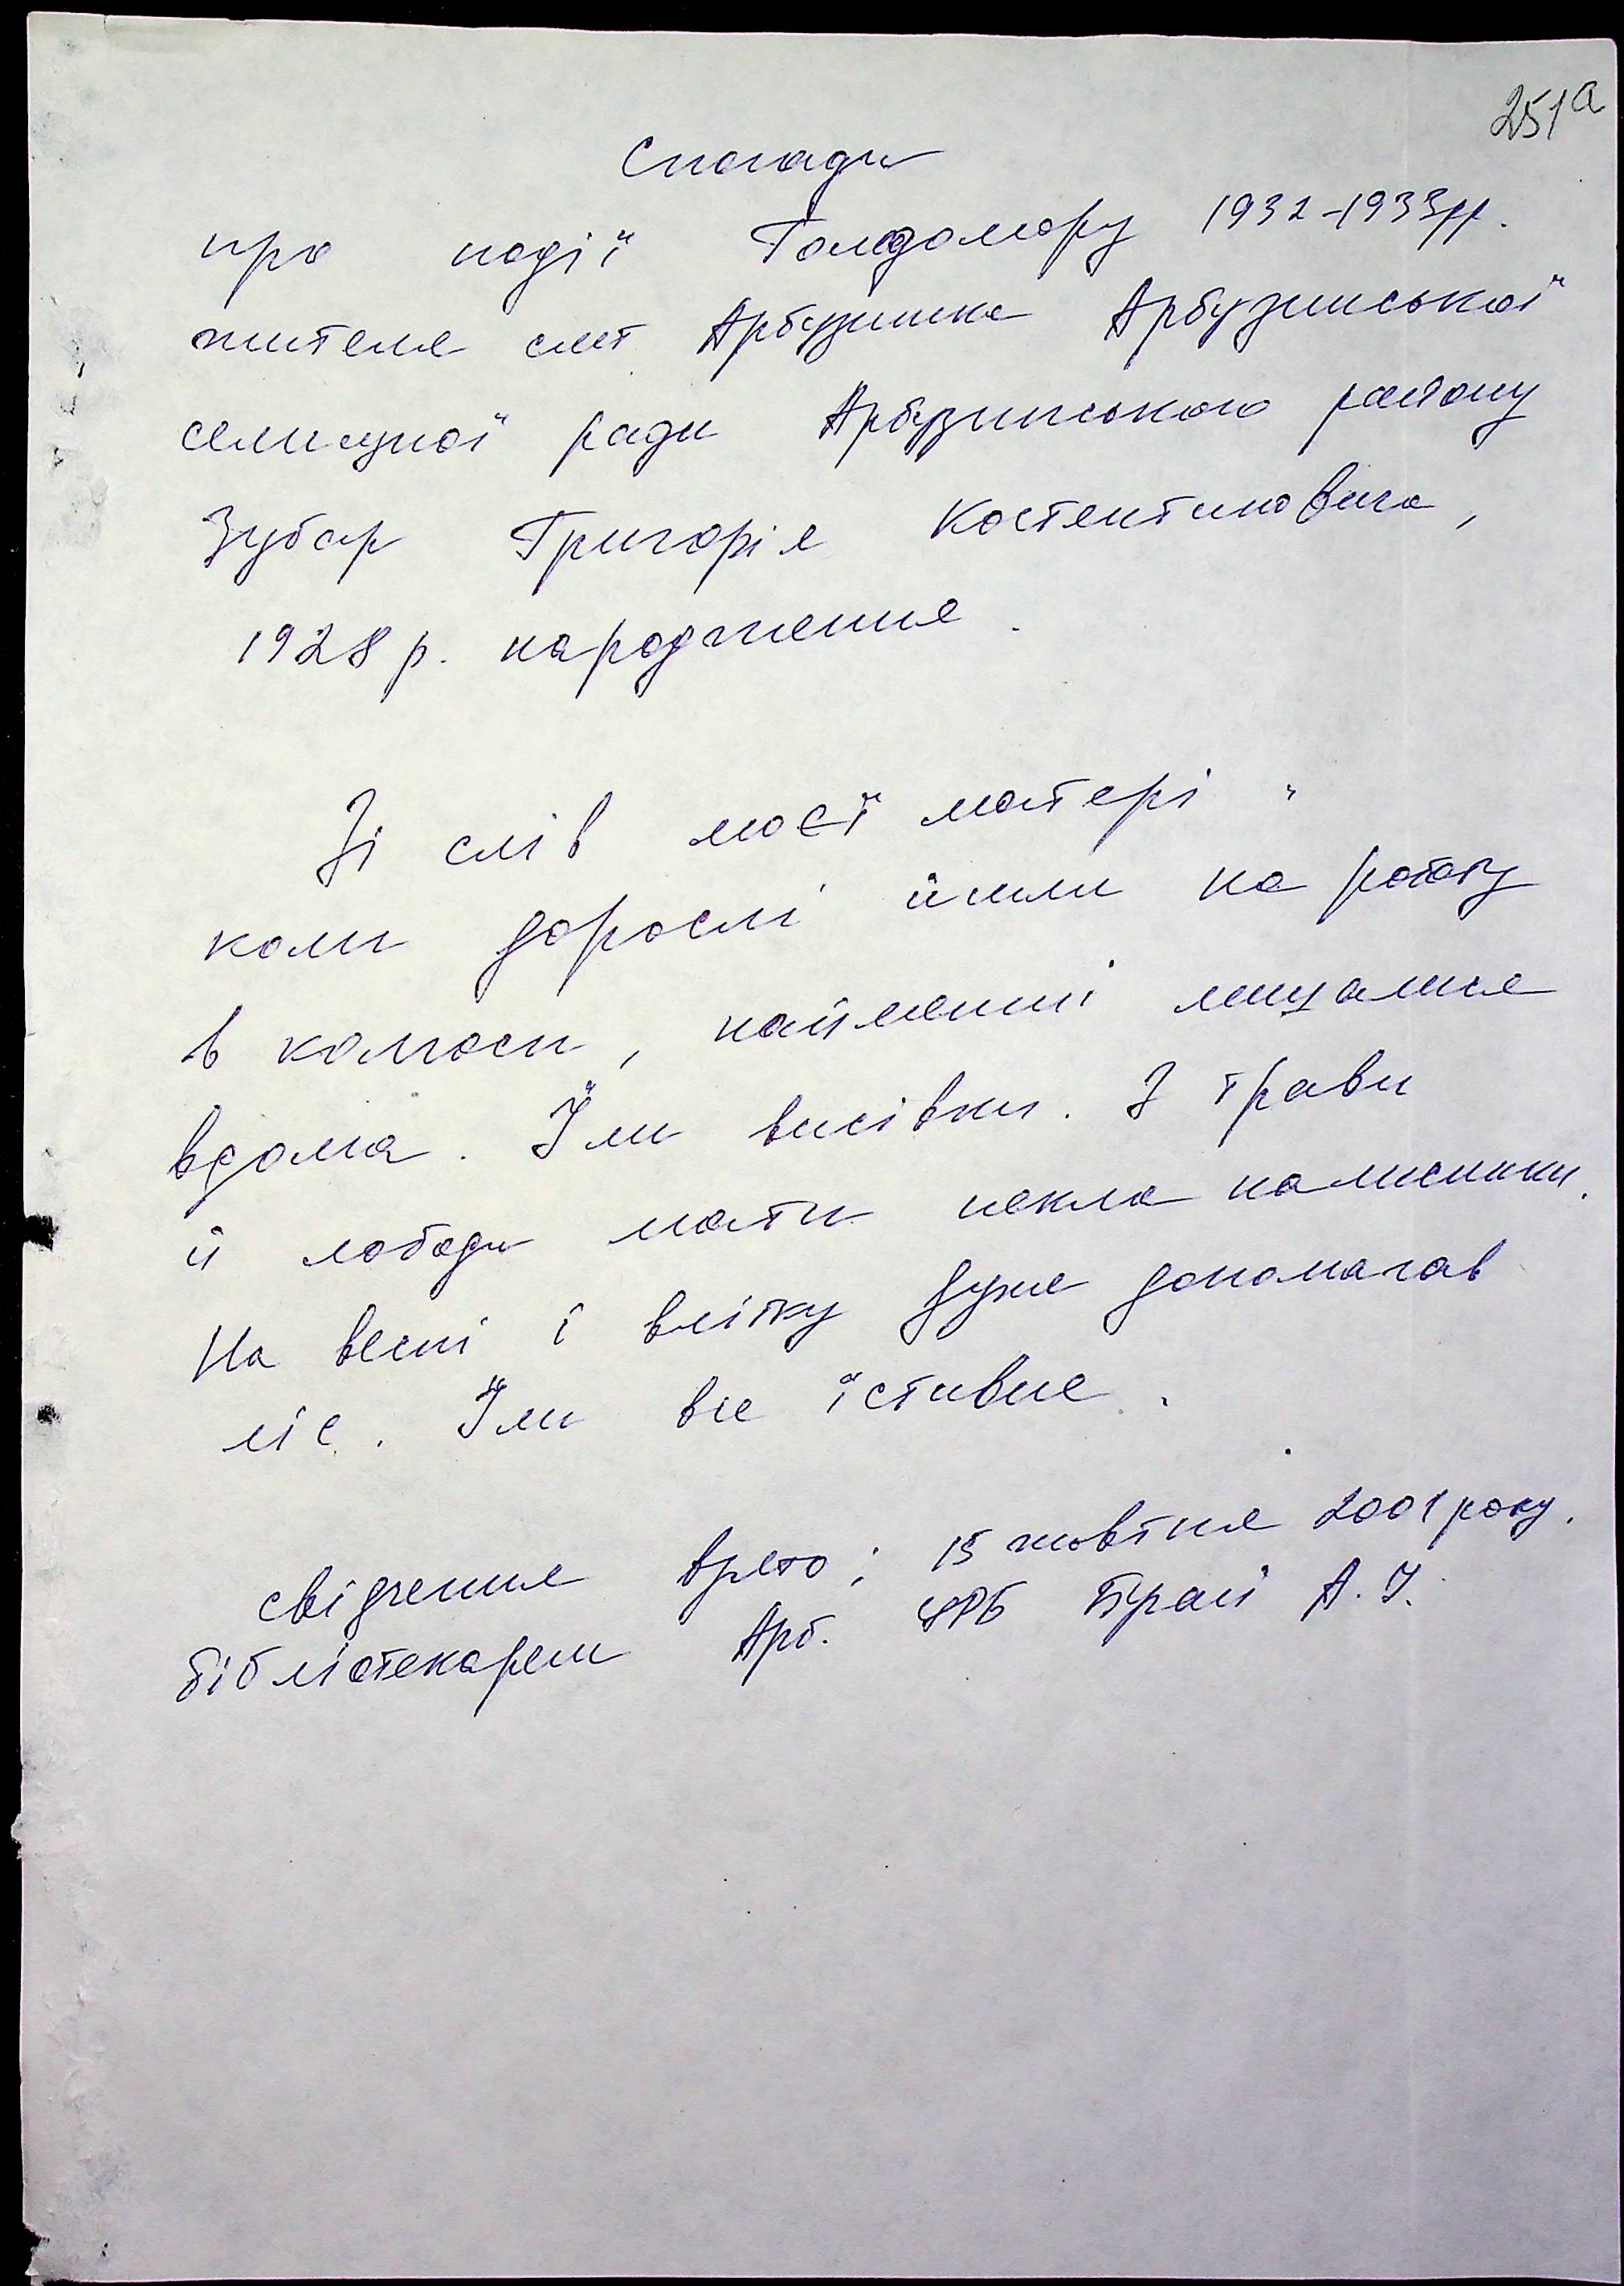 251а
Спогади
про події Голодомору 1932-1933рр.
жителя смт Арбузинка Арбузинської
селищної ради Арбузинського району
Зубар Григорія Костянтиновича,
1928 р. народження.
Зі слів моєї матері
коли дорослі йшли на роботу
в колгоси, найменші лишалися
вдома. Їли висівки. З трави
й лободи мати пекла налисники.
На весні і влітку дуже допомагав
ліс. Їли все їстивне.
свідчення взято; 15 жовтня 2001 року.
бібліотекарем Арб. ЦРБ А. І.